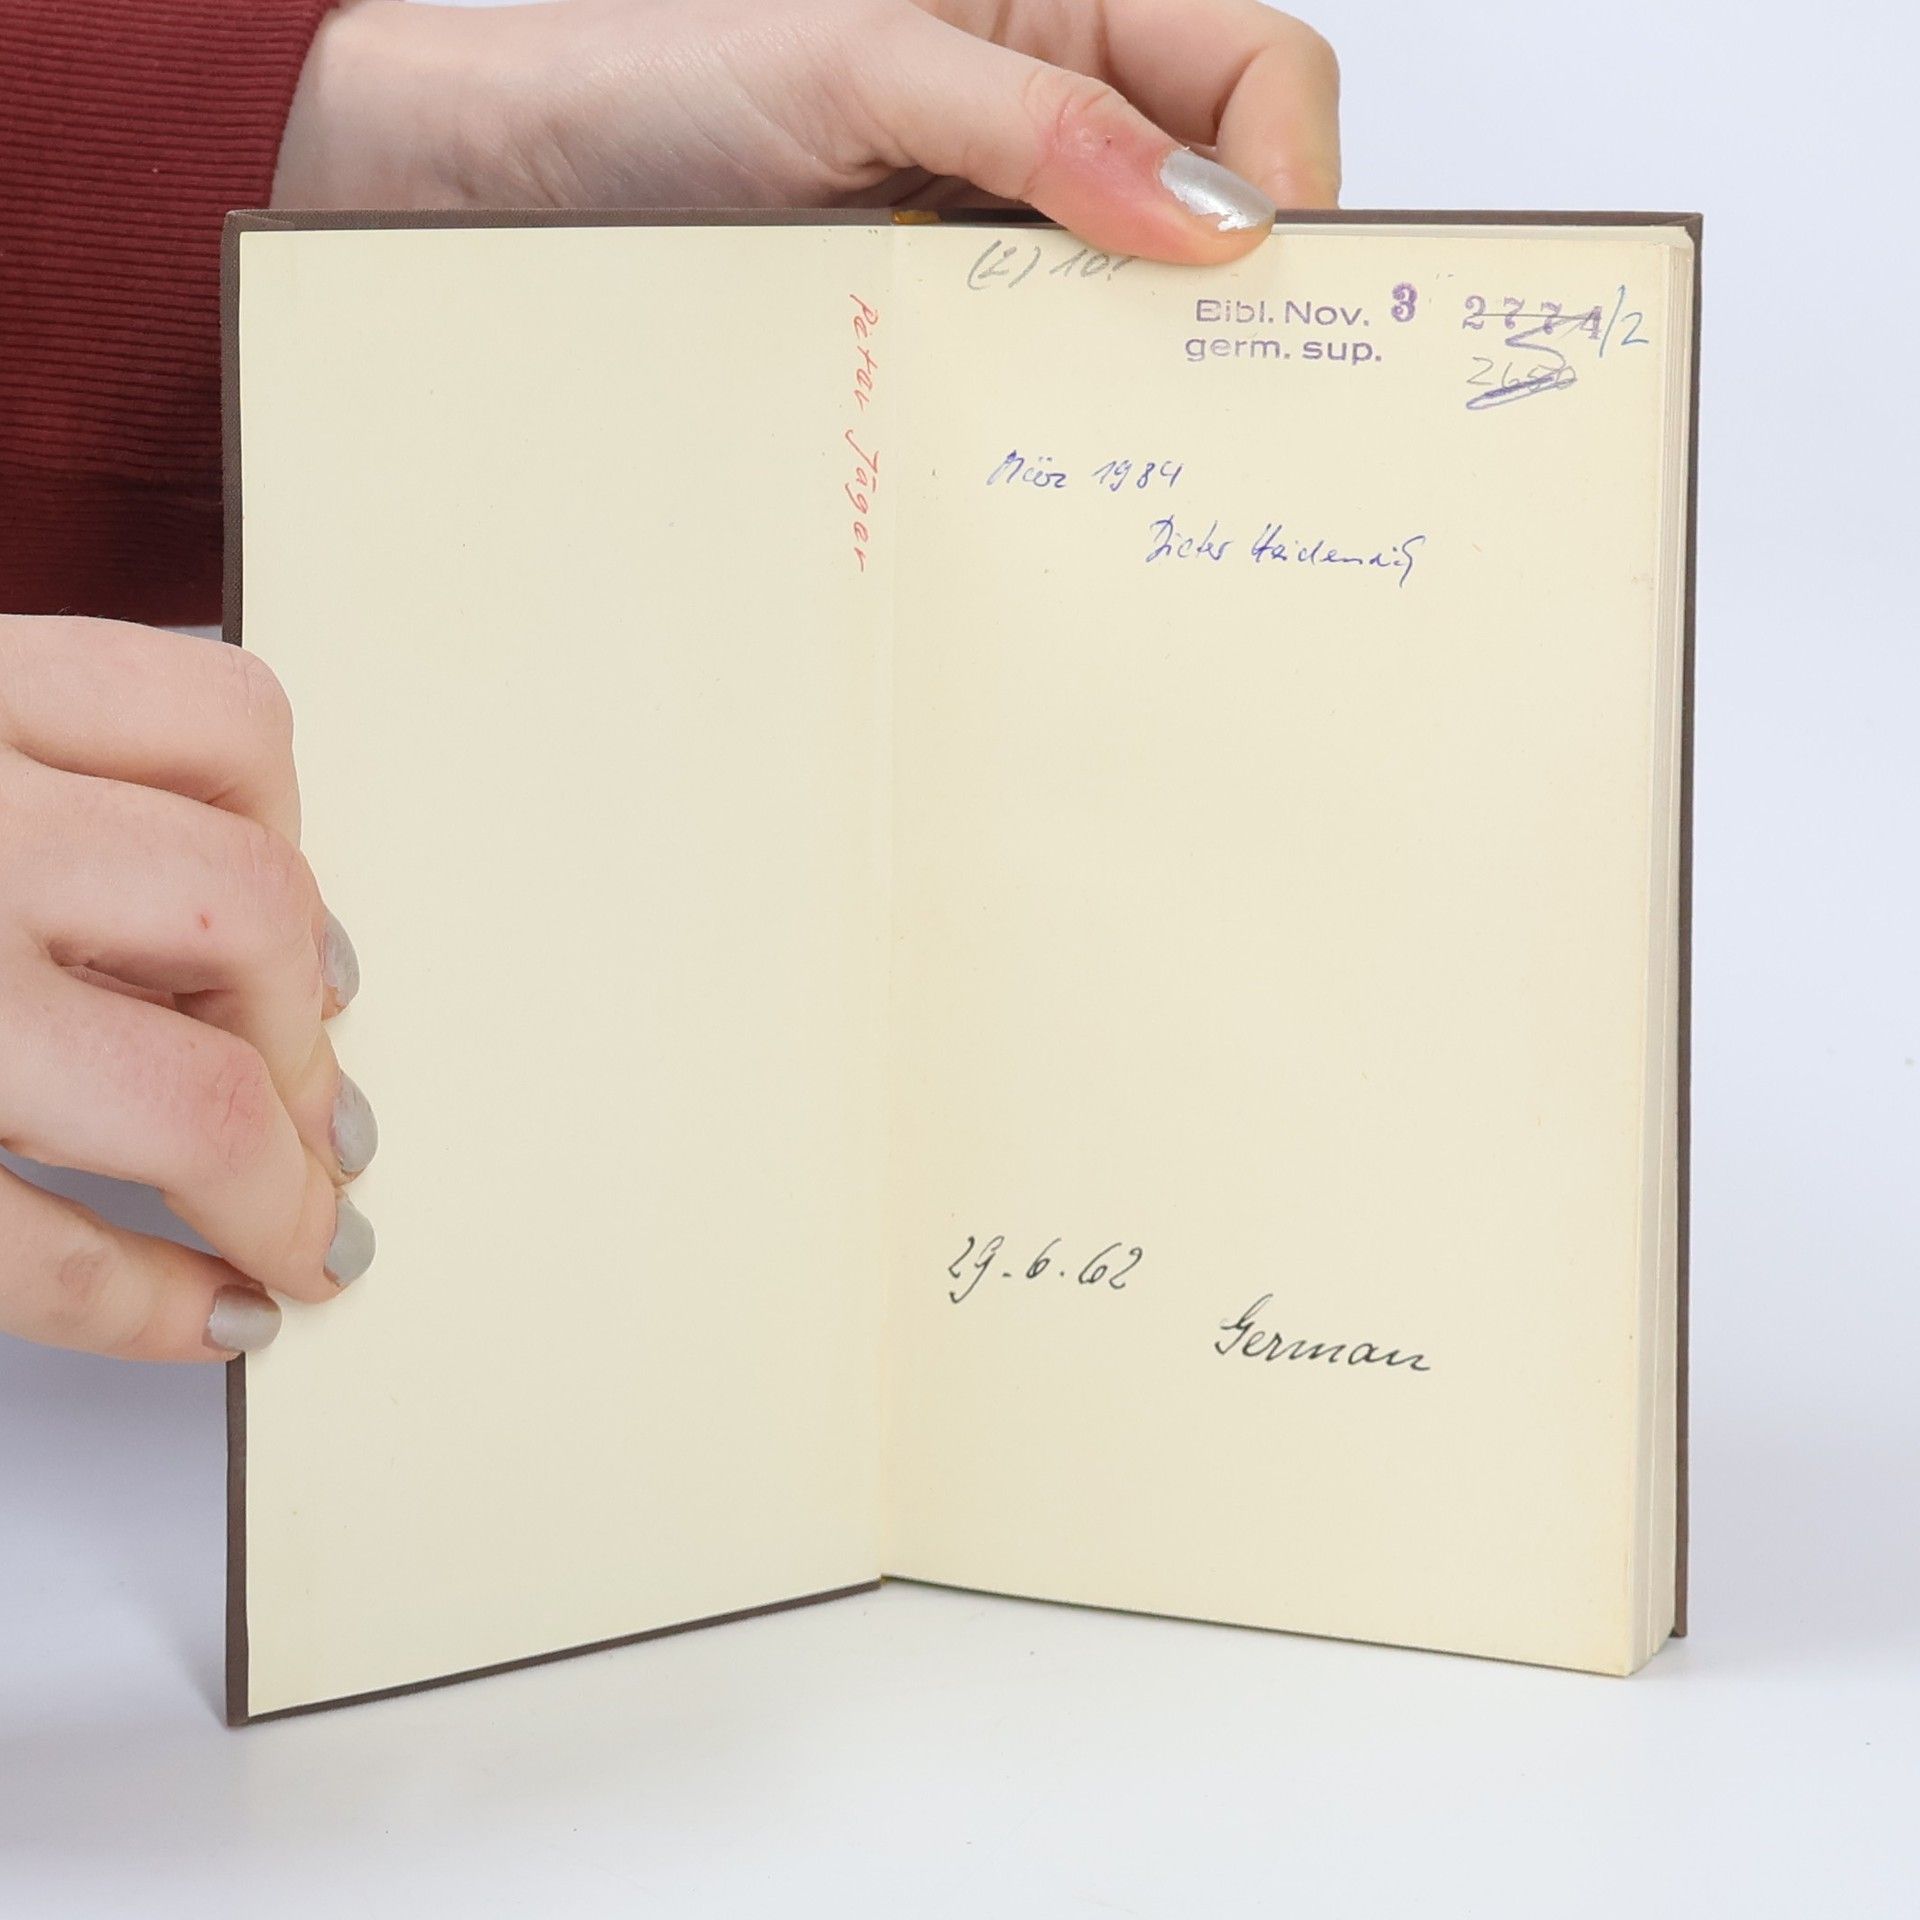 Peter Jäger
(2) 10.-
Bibl. Nov. 3 2774/2
germ. sup.
März 1984
Dieter
29.6.62
German